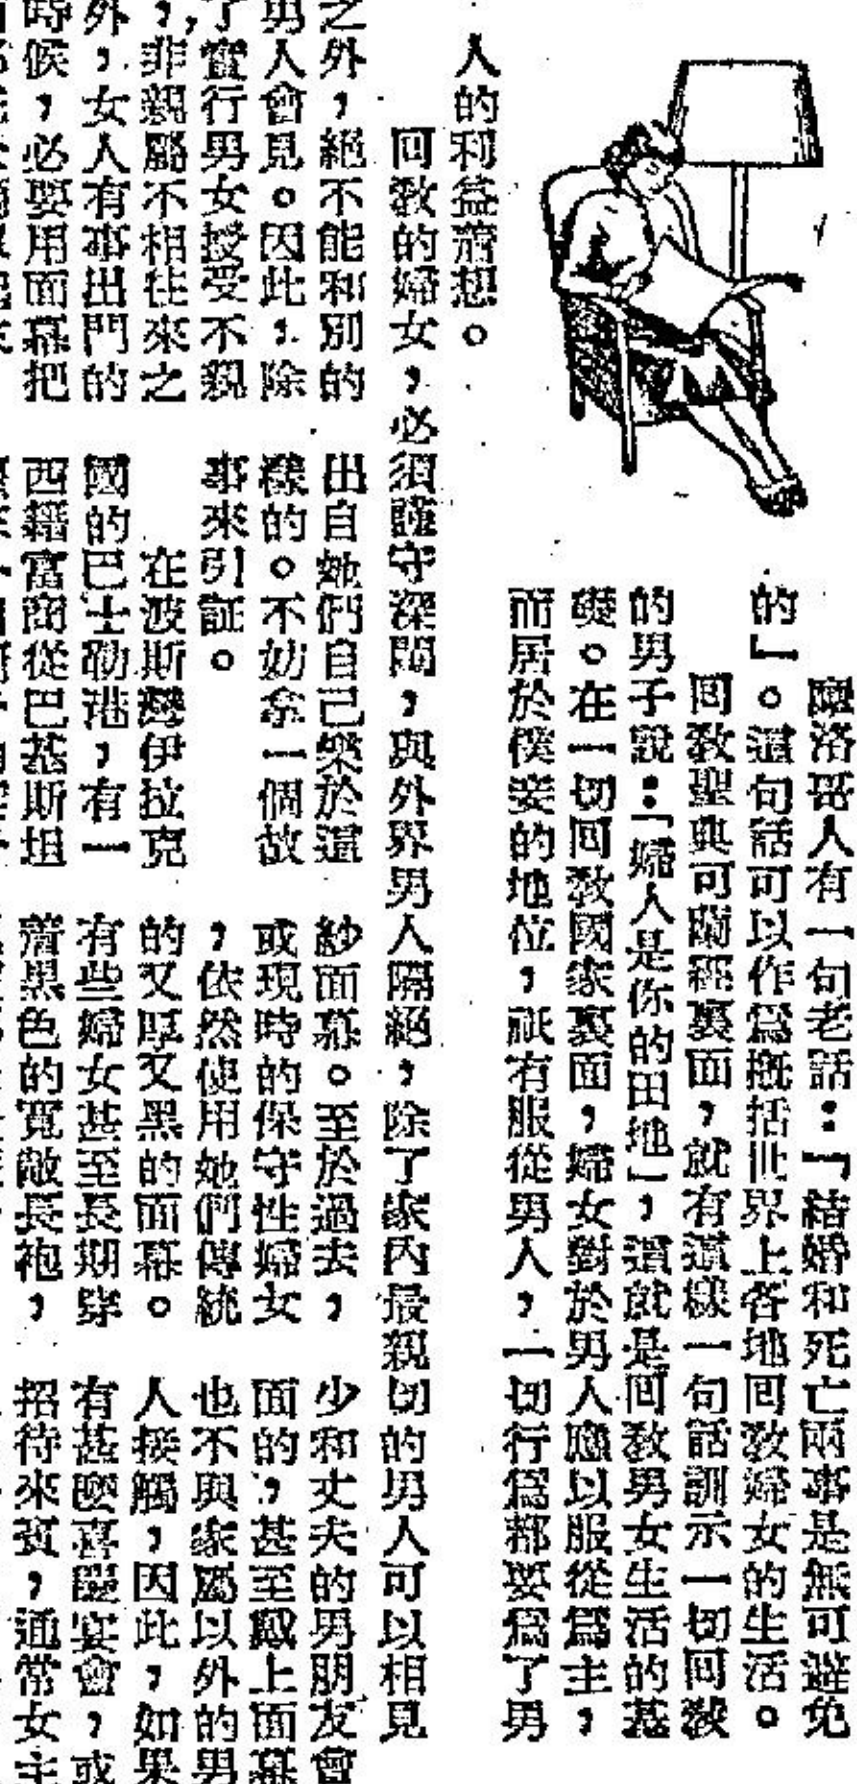 摩洛哥人有一句老話：「結婚和死亡兩事是無可避免
的」。這句話可以作爲概括世界上各地回敎婦女的生活。
回敎聖典可蘭經裏面，就有這樣一句話訓示一切回敎
的男子說：「婦人是你的田地」，這就是回敎男女生活的基
礎。在一切回敎國家裏面，婦女對於男人應以服從爲主，
而居於僕妾的地位，祇有服從男人，一切行爲都要爲了男
人的利益着想。
回敎的婦女，必須謹守深閨，與外界男人隔絕，除了家內最親切的男人可以相見
之外，絕不能和別的
男人會見。因此，除
了實行男女授受不親
，非親屬不相往來之
外，女人有事出門的
時候，必要用面幕把
出自她們自己樂於這
樣的。不妨拿一個故
事來引証。
在波斯灣伊拉克
國的巴士勒港，有一
西籍富商從巴基斯坦
紗面幕。至於過去，
或現時的保守性婦女
，依然使用她們傳統
的又厚又黑的面幕。
有些婦女甚至長期穿
着黑色的寬敞長袍，
少和丈夫的男朋友會
面的，甚至戴上面幕
也不與家屬以外的男
人接觸，因此，如果
有甚麽喜慶宴會，或
招待來賓，通常女主